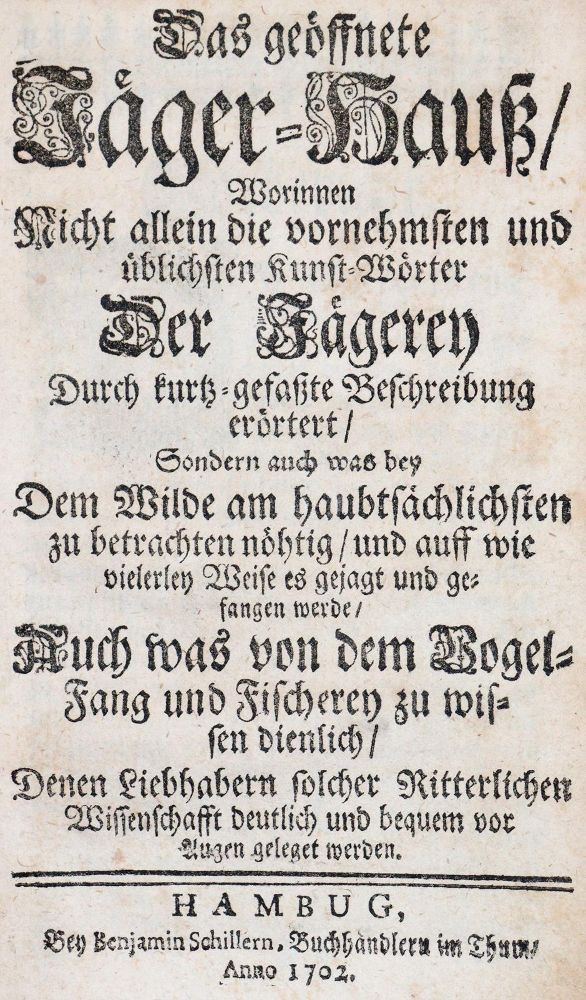 Das geöffnete
Jäger-Hauß/
Worinnen
Nicht allein die vornehmsten und
üblichsten Kunst-Wörter
Der Jägerey
Durch kurtz-gefaßte Beschreibung
erörtert/
Sondern auch was bey
Dem Wilde am haubtsächlichsten
zu betrachten nöhtig/und auff wie
vielerley Weise es gejagt und ge-
fangen werde/
Auch was von dem Vogel-
Fang und Fischerey zu wis-
sen dienlich/
Denen Liebhabern solcher Ritterlichen
Wissenschafft deutlich und bequem vor
Augen geleget werden.
HAMBUG,
Bey Benjamin Schillern, Buchhändlern im Thum/
Anno 1702.